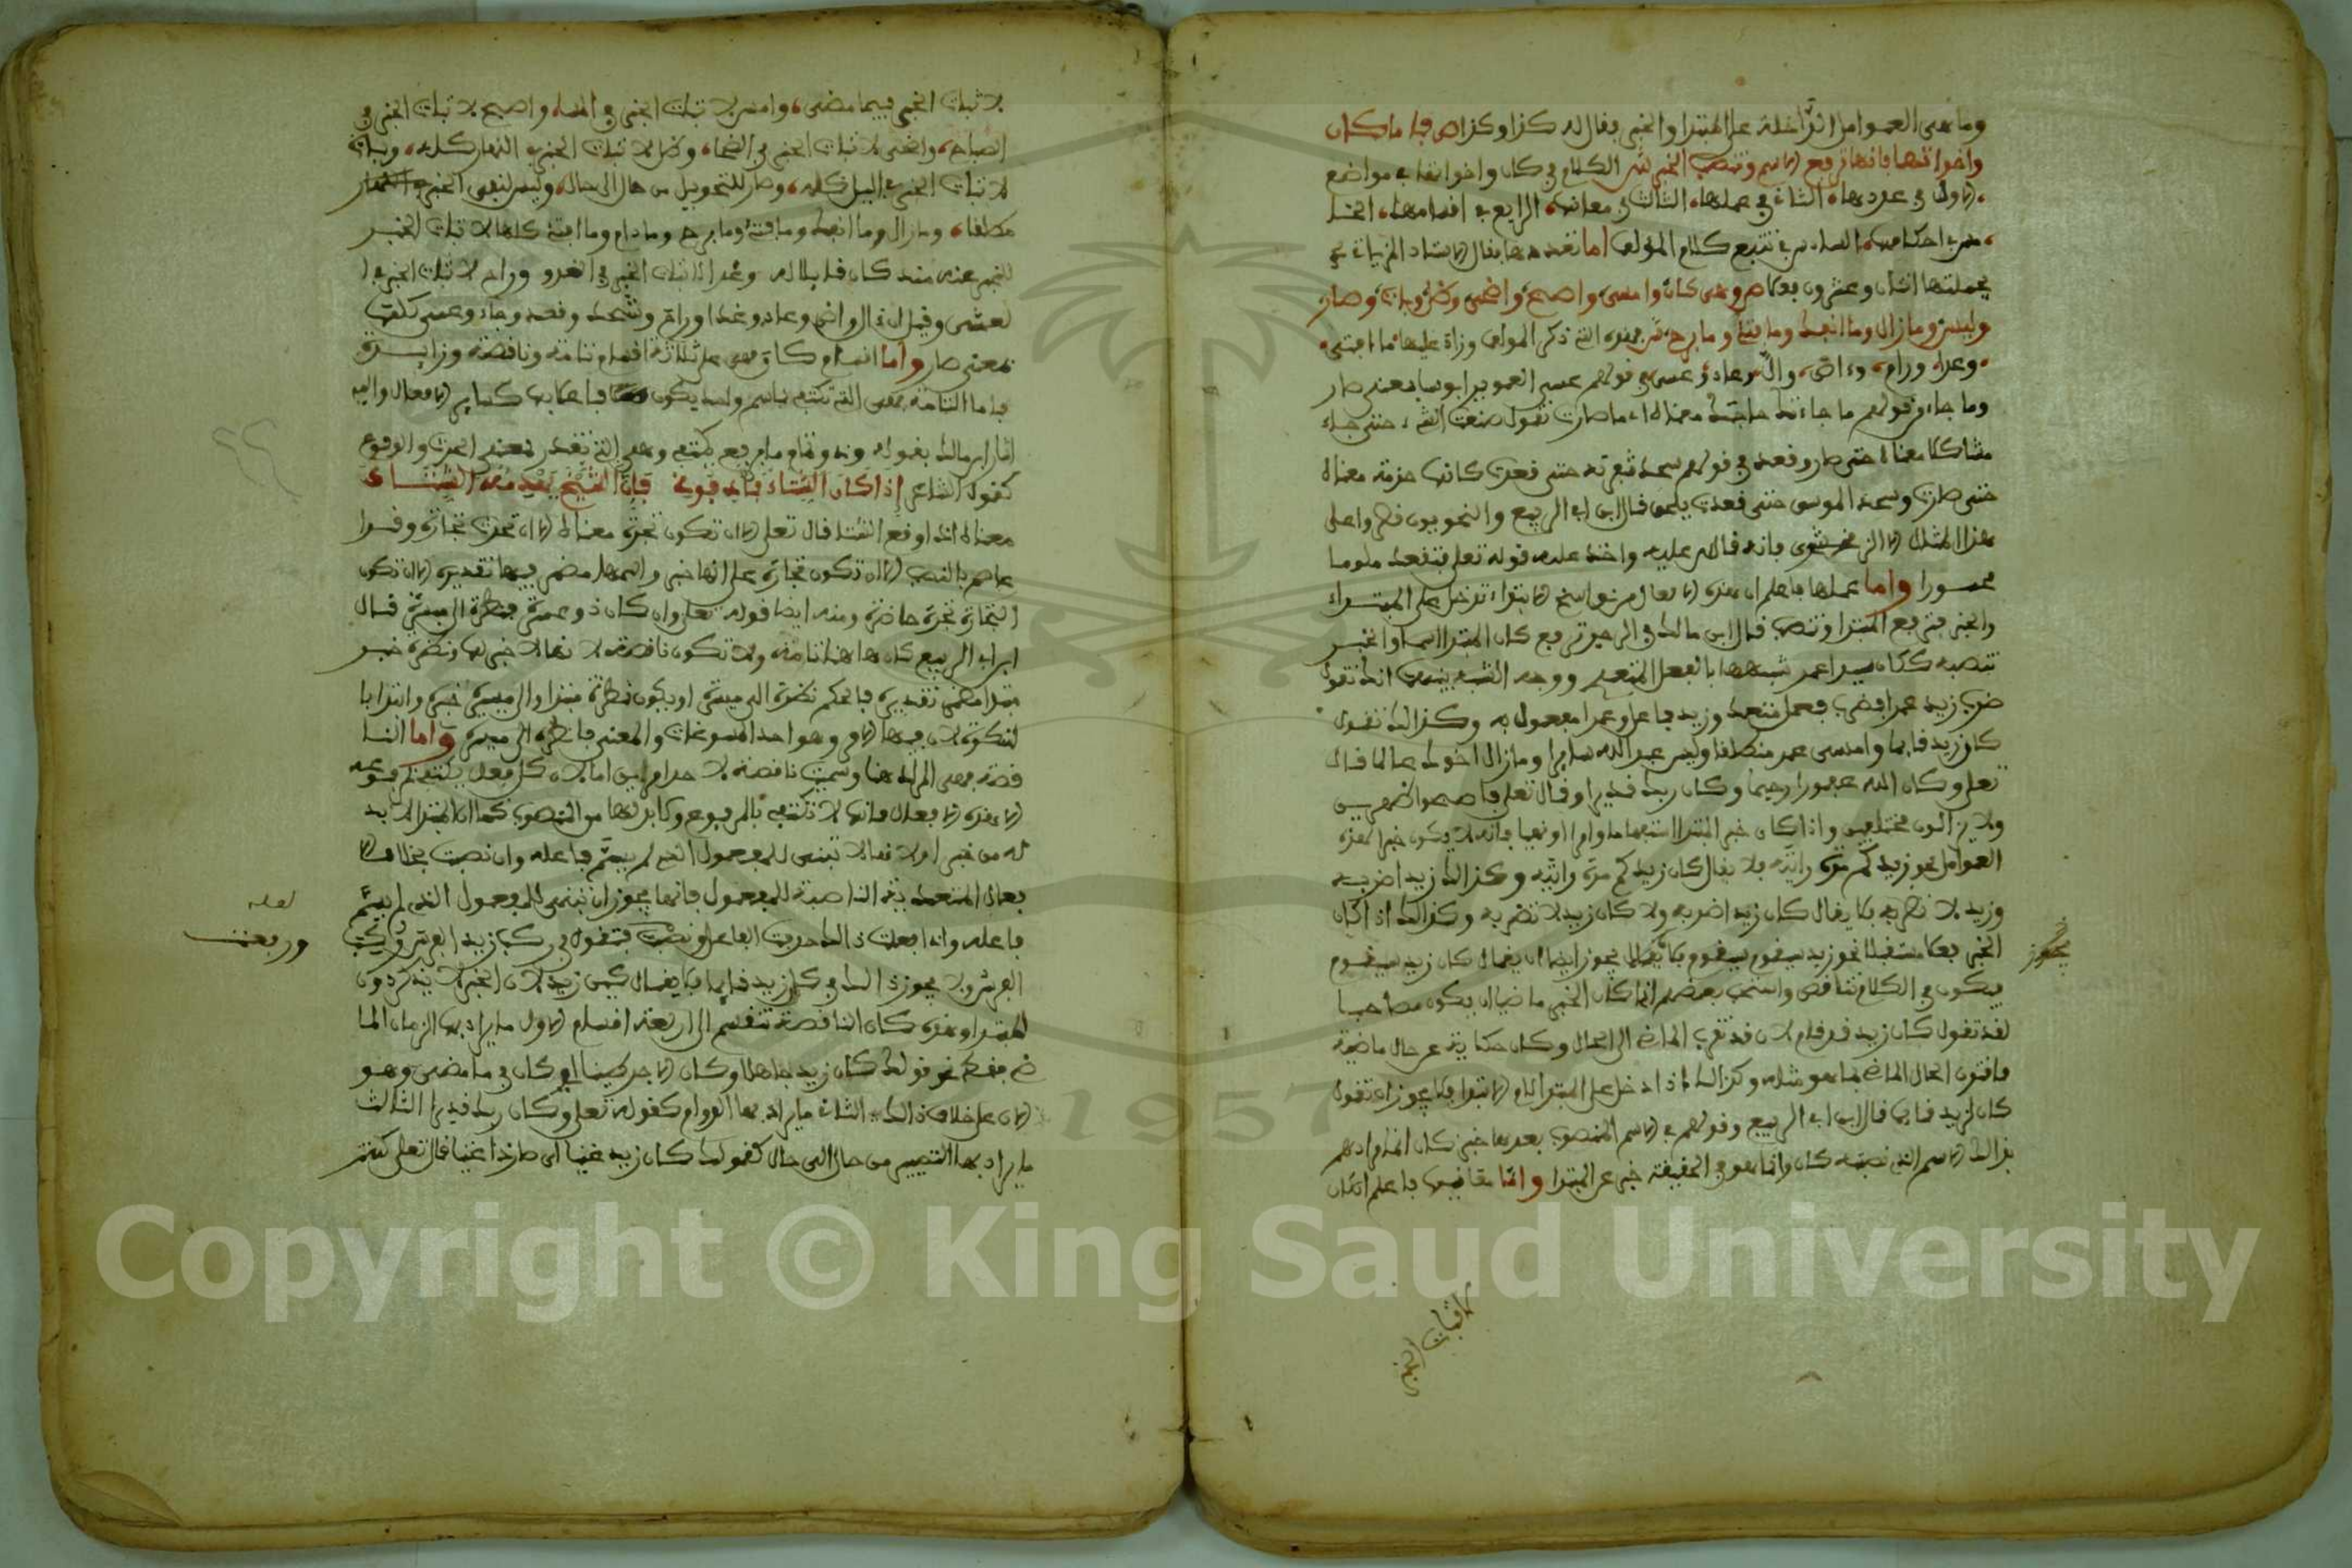 وما هي العوامل الداخلة على المبتدا والخبر يقال له كذا وكذا ص فاما كان
واخواتها فانها ترفع الاسم وتنصب الخبر ش الكلام في كان واخواتها في مواضع
الاول في عددها، الثاني في عملها، الثالث في معانيها، الرابع في اقسامها، الخا
مس في احكامها، السادس في تتبع كلام المؤلف اما عددها فقال الاستاد الزياتي
جملتها اثنان وعشرون فعلا ص وهي كان وامسى واصبح واضحى وظل وبات وصار
وليس وما زال وما انفك وما فتئ وما برح ش هذه التي ذكر المؤلف وزاد عليها
وغدا، وراح، وءاض، وعاد، وعسى في قولهم عسى الغوير ابوسا بمعنى صار
وما جاء في قولهم ما جاءت حاجتك معناه اي ما صارت تقول صنعت الشيء حتى جاء
مشاكلا معناه حتى صار وقعد في قولهم شحذ شفرته حتى قعدت كانها حربة معناه
حتى صارت وشحذ الموسى حتى قعدت قال ابن ابي الربيع والنحويون
هذا المثل الا الزمخشري فانه قاس عليه واخذ عليه قوله تعلى فتقعد ملوما
محسورا واما عملها فاعلم ان هذه الافعال من نواسخ الابتداء تدخل على المبتداء
والخبر فترفع المبتدا وتنصب قال ابن مالك في الرجز ترفع كان المبتدا اسما والخبر
تنصبه ككان سيدا عمر شبهها بالفعل المتعدي ووجه الشبه بينهما انك تقول
ضرب زيد عمرا فضرب فعل متعد وزيد فاعل وعمرا مفعول به وكذالك تقول
كان زيد قايما وامسى عمر منطلقا وليس عبد الله سايرا وما زال اخوك عالما قال
تعلى وكان الله غفورا رحيما وكان ربك قديرا وقال تعلى فاصبحوا ظهرين
ولا يزالون مختلفين واذا كان خبر المبتدا استفهاما او امرا او نهيا فانه لا يكون خبرا لهذه
العوامل نحو زيد كم مرة رايته فلا يقال كان زيد كم مرة رايته وكذالك زيد اضربه
وزيد لا تضربه فلا يقال كان زيد اضربه ولا كان زيد لا تضربه وكذالك اذا كان
الخبر فعلا مستقبلا نحو زيد سيقوم فلا يجوز ايضا ان يقال كان زيد سيقوم
فيكون في الكلام تناقض واستحب بعضهم اذا كان الخبر ماضيا ان يكون مصاحبا
لقد تقول كان زيد قد قام لان قد تقرب الماضي الى الحال وكان حكاية عن حال ماضية
الحال الماضي بما هو مثله وكذالك اذا دخل على المبتدا لام الابتدا فلا يجوز ان تقول
كان لزيد قايما قال ابن ابي الربيع وقولهم في الاسم المنصوب بعدها خبر كان انما مرادهم
بذالك الاسم الذي نصبته كان وانما هو في الحقيقة خبر عن المبتدا واما معانيها فاعلم ان كان
يجوز
لاثبات الخبر
لاثبات الخبر فيما مضى، وامسى لاثبات الخبر في المساء، واصبح لاثبات الخبر في
الصباح، واضحى لاثبات الخبر في الضحاء، وظل لاثبات الخبر في النهار كله، وبات
لاثبات الخبر في اليل كله، وصار للتحويل من حال الى حال، وليس لنفي الخبر
مطلقا، وما زال وما انفك وما فتئ وما برح وما دام كلها لاثبات الخبر
للمخبر عنه منذ كان قابلا له وغدا لاثبات الخبر في الغدو وراح لاثبات الخبر في ا
لعشي وقيل ان ال وءاض وعاد وغدا وراح وقعد وجاء وعسى كلها
بمعنى صار واما اقسام كان فهي على ثلاثة اقسام تامة وناقصة وزايدة
فاما التامة فهي التي تكتفي باسم واحد يكون فاعلا بها كساير الافعال واليه
اشار ابن مالك بقوله وذو تمام ما برفع يكتفي وهي التي تقدر بمعنى الحدث والوقوع
كقول الشاعر إذا كان الشتاء فأدفئوني فإن الشيخ يهدمه الشتاء
معناه اذا وقع الشتا قال تعلى الا ان تكون تجرة معناه الا ان تحدث تجارة وقرا
عاصم بالنصب الا ان تكون تجارة على انها خبر واسمها مضمر فيها تقديره الا ان تكون
التجارة تجرة حاضرة ومنه ايضا قوله تعلى وان كان ذو عسرة فنظرة الى ميسرة قال
ابن ابي الربيع كان هاهنا تامة ولا تكون ناقصة لانها لا خبر لها ونظرة خبر
مبتدا مضمر تقديره فالحكم نظرة الى ميسرة او يكون نظرة مبتدا والى ميسرة خبره وابتدا با
لنكرة لان فيها الامر وهو احد المسوغات والمعنى فانظره الى ميسرة واما النا
قصة فهي المراد هنا وسميت ناقصة لاحد امرين اما لان كل فعل يكتفي بمرفوعه
الا هذه الافعال فانها لا تكتفي بالمرفوع ولا بد لها من المنصوب كما ان المبتدا لا بد
له من خبر او لانها لا تبنى للمفعول الذي لم يسم فاعله وان نصبت بخلاف الا
فعال المتعدية الناصبة للمفعول فانها يجوز ان تبنى للمفعول الذي لم يسم
فاعله واذا فعلت ذالك حذفت الفاعل فتقول في ركب زيد الفرس ركب
الفرس ولا يجوز ذالك في كان زيد قايما فلا يقال كين زيد لان الخبر لا يذكر دون
المبتدا وهذه كان الناقصة تنقسم الى اربعة اقسام الاول ما يراد بها الزمان الما
ضي فقط نحو قولك كان زيد جاهلا وكان الاجر كينا اي كان في ما مضى وهو
الان على خلاف ذالك، الثاني ما يراد بها الدوام كقوله تعلى وكان ربك قديرا الثالث
ما يراد بها التصيير من حال الى حال كقولك كان زيد غنيا اي صار ذا غنا قال تعلى كنتم
لعله
ورفعت
Copyright © King Saud University
1957